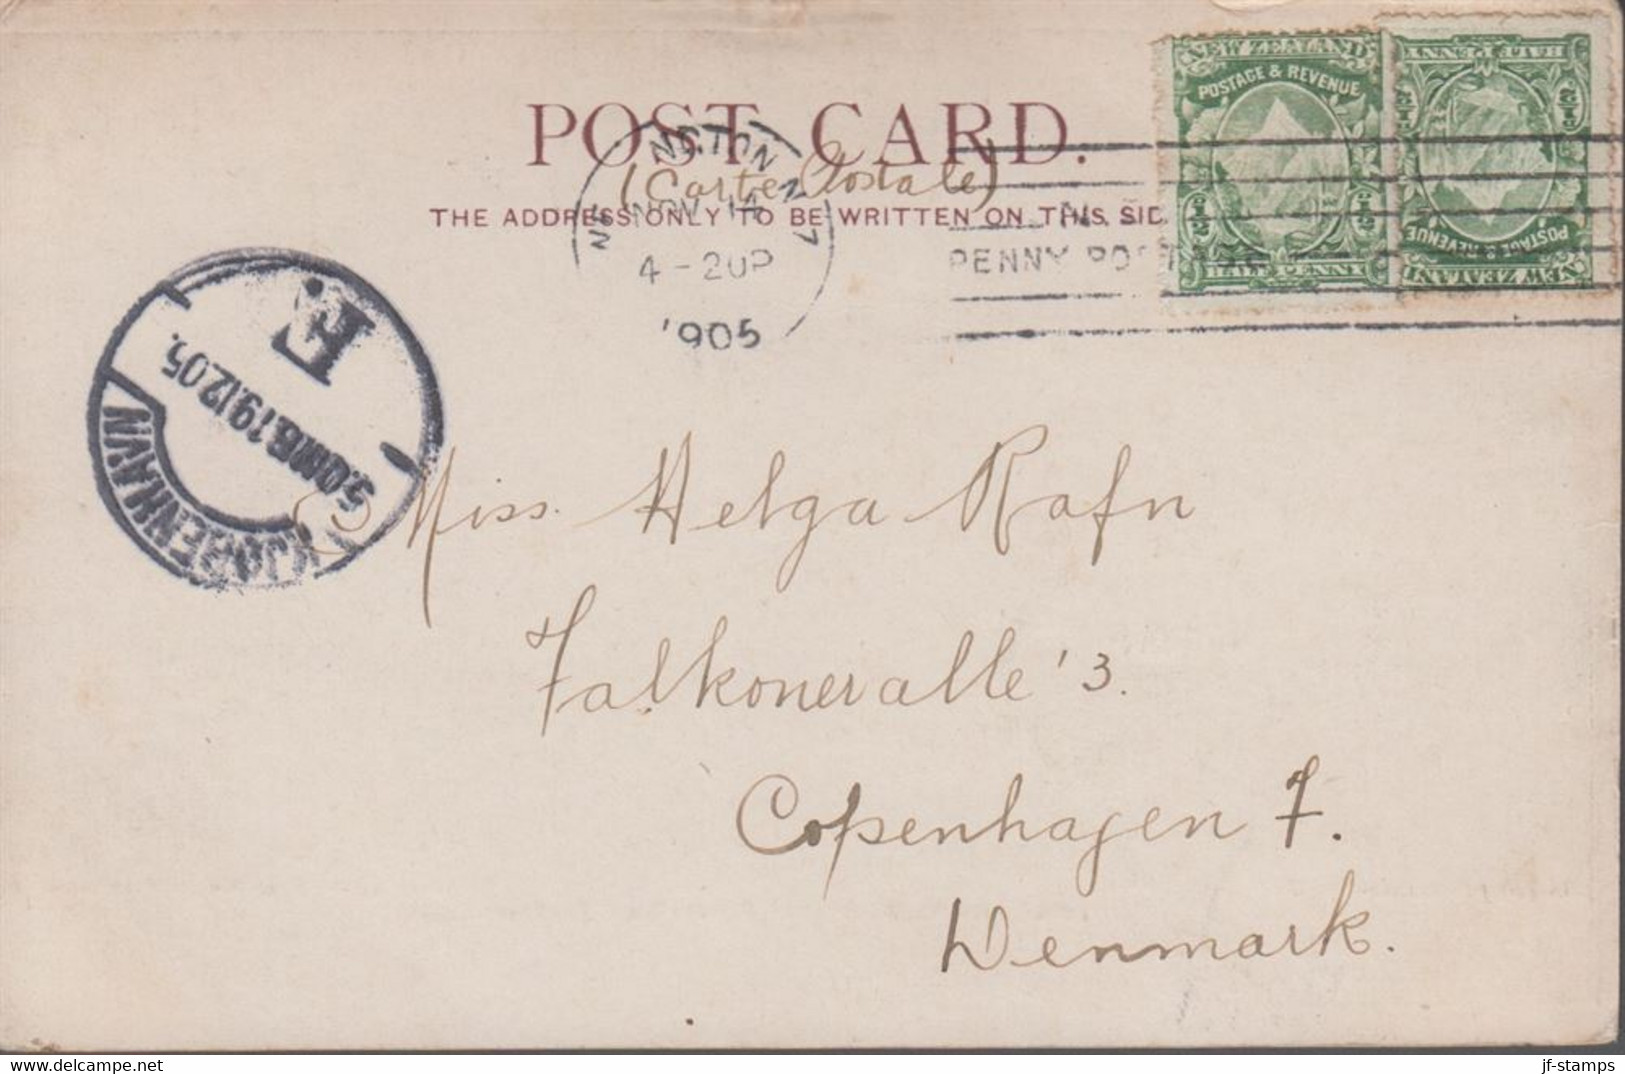 POST CARD.
(Carte Postale)
THE ADDRESS ONLY TO BE WRITTEN ON THIS SID
NOV 14
4-20P
'905
N.Z.
PENNY POSTAGE
NEW ZEALAND
POSTAGE & REVENUE
1/2 1/2
HALF PENNY
NEW ZEALAND
POSTAGE & REVENUE
1/2 1/2
HALF PENNY
KJØBENHAVN
5.OMB.19.12.05.
E.
Miss. Helga Rafn
Falkoneralle '3.
Copenhagen F.
Denmark.
delcampe.net
jf-stamps